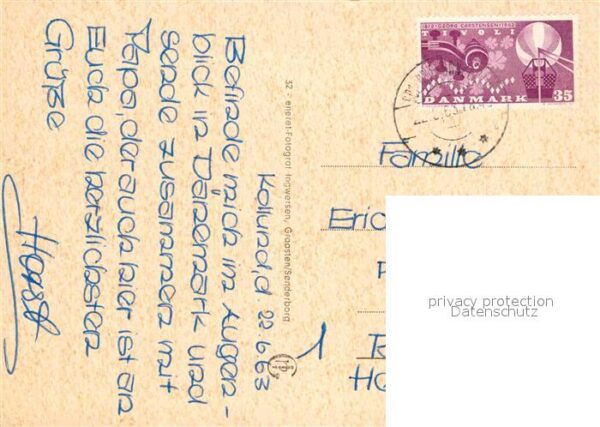 Kollund, d. 22.6.63
Befinde mich im Augen-
blick in Dänemark und
sende zusammen mit
Papa, der auch hier ist an
Euch die herzlichsten
Grüße
Horst
32 - eneret-Fotograf Ingwersen, Graasten/Sønderborg
1812 · GEORG CARSTENSEN · 1962
TIVOLI
DANMARK 35
Familie
Eric
privacy protection
Datenschutz
1